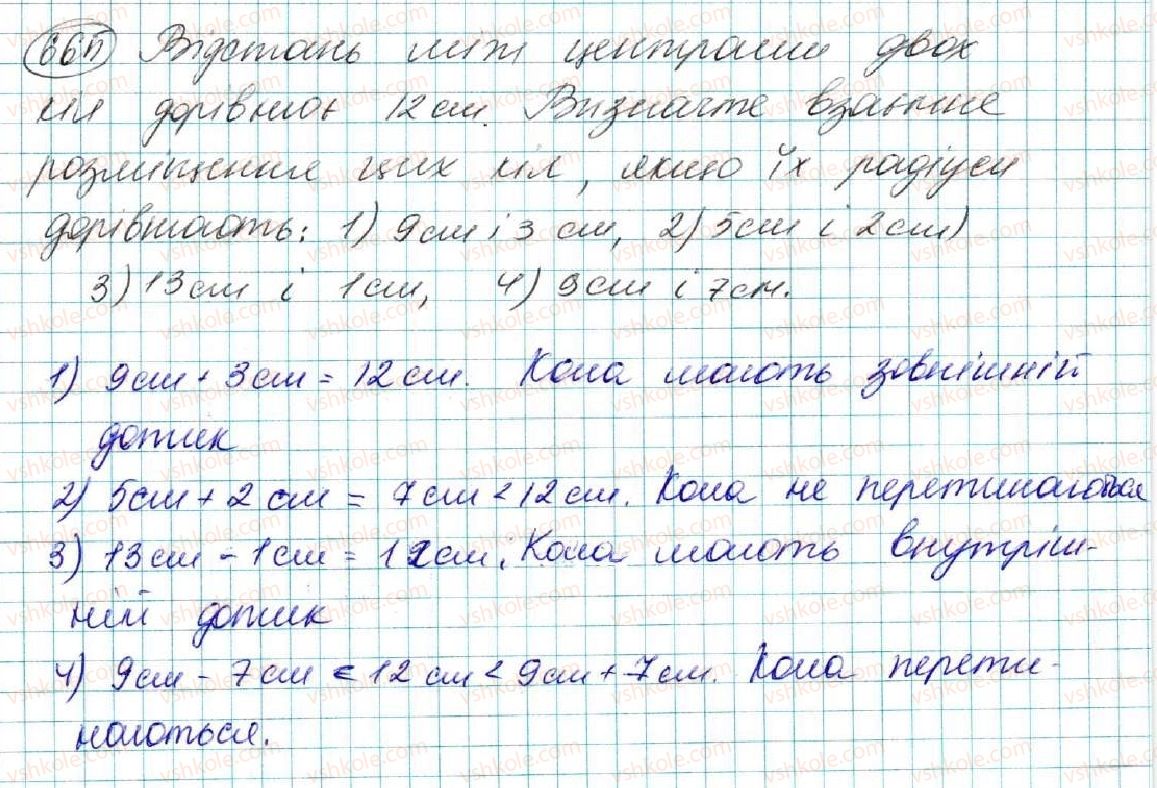 665 Відстань між центрами двох
кіл дорівнює 12 см. Визначте взаємне
розміщення цих кіл, якщо їх радіуси
дорівнюють: 1) 9 см і 3 см, 2) 5 см і 2 см)
3) 13 см і 1 см, 4) 9 см і 7 см.
1) 9 см + 3 см = 12 см. Кола мають зовнішній
дотик
2) 5 см + 2 см = 7 см < 12 см. Кола не перетинаються
3) 13 см - 1 см = 12 см. Кола мають внутріш-
ній дотик
4) 9 см - 7 см < 12 см < 9 см + 7 см. Кола перети-
наються.